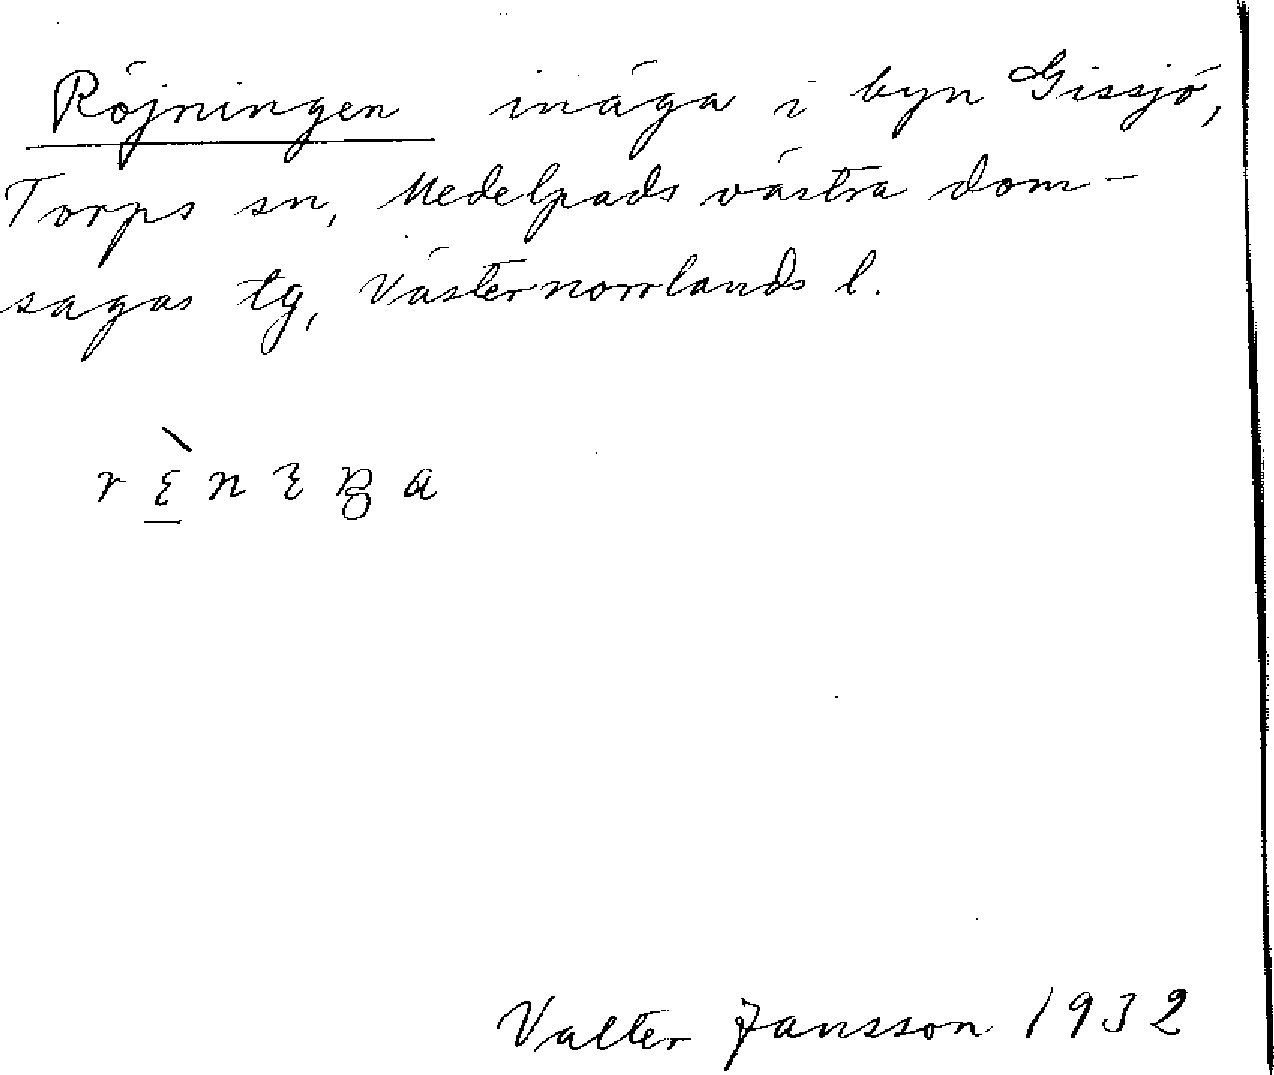 Röjningen inäga i byn Gissjö,
Torps sn, Medelpads västra dom-
sagas tg, Västernorrlands l.
Valter Jansson 1932